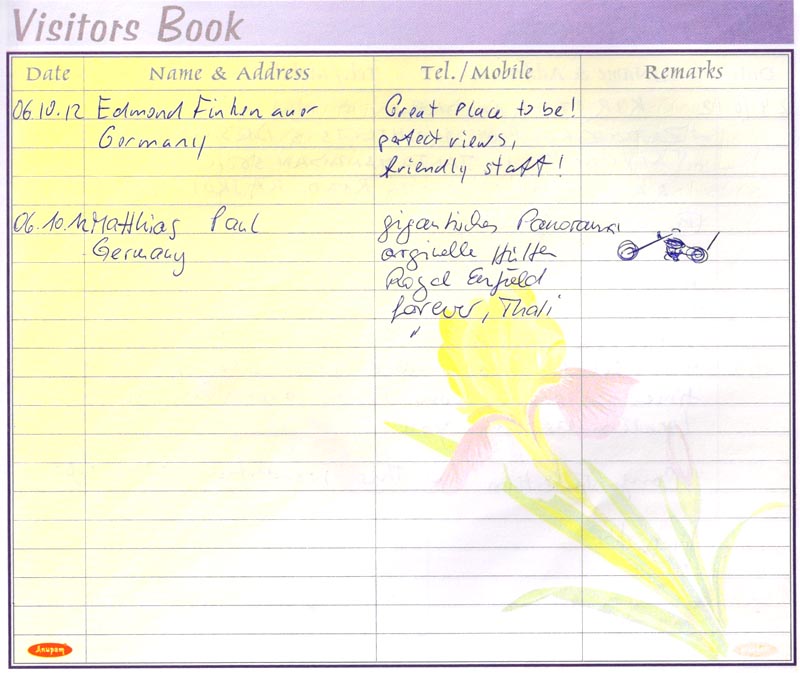 Visitors Book
Date Name & Address Tel./Mobile Remarks
06.10.12 Edmond Finkenauer Great Place to be!
Germany perfect views,
friendly staff!
06.10.12 Matthias Paul gigantisches Panorama
Germany orginelle Hütten
Royal Enfield
forever, Thali
"
Anupam